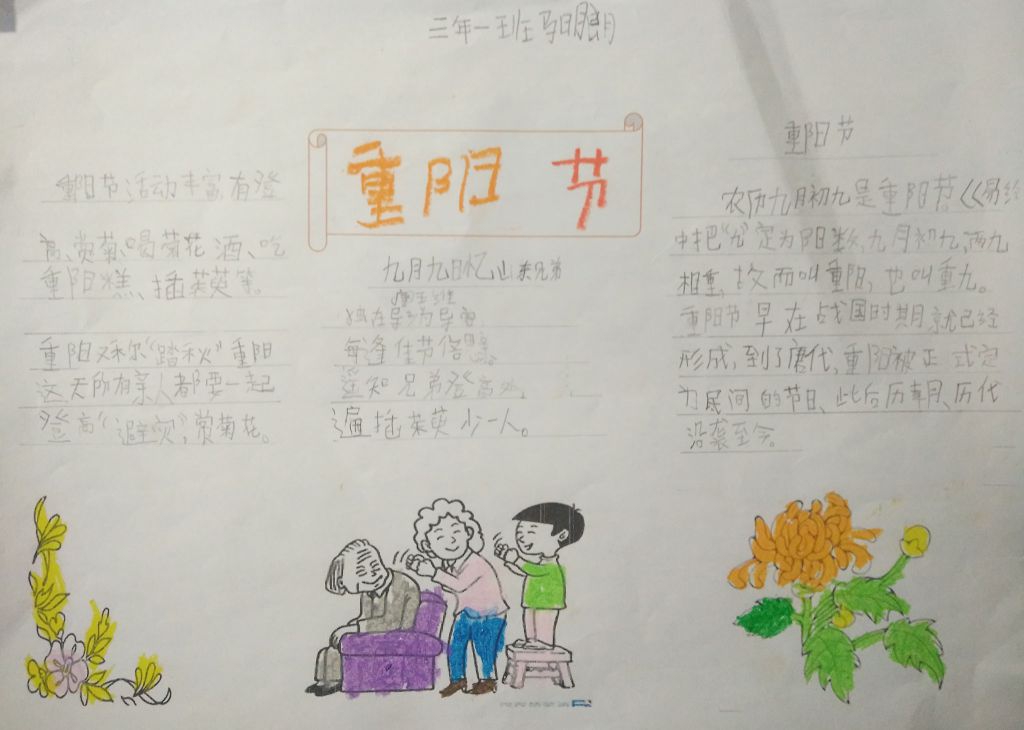 三年一班马明朗
重阳节
重阳节活动丰富,有登
高、赏菊、喝菊花酒、吃
重阳糕、插茱萸等。
重阳又称“踏秋”重阳
这天所有亲人都要一起
登高“避灾”,赏菊花。
九月九日忆山东兄弟
唐王维
独在异乡为异客,
每逢佳节倍思亲。
遥知兄弟登高处,
遍插茱萸少一人。
重阳节
农历九月初九是重阳节《易经
中把“九”定为阳数,九月初九,两九
相重,故而叫重阳,也叫重九。
重阳节早在战国时期就已经
形成,到了唐代,重阳被正式定
为民间的节日,此后历朝历代
沿袭至今。